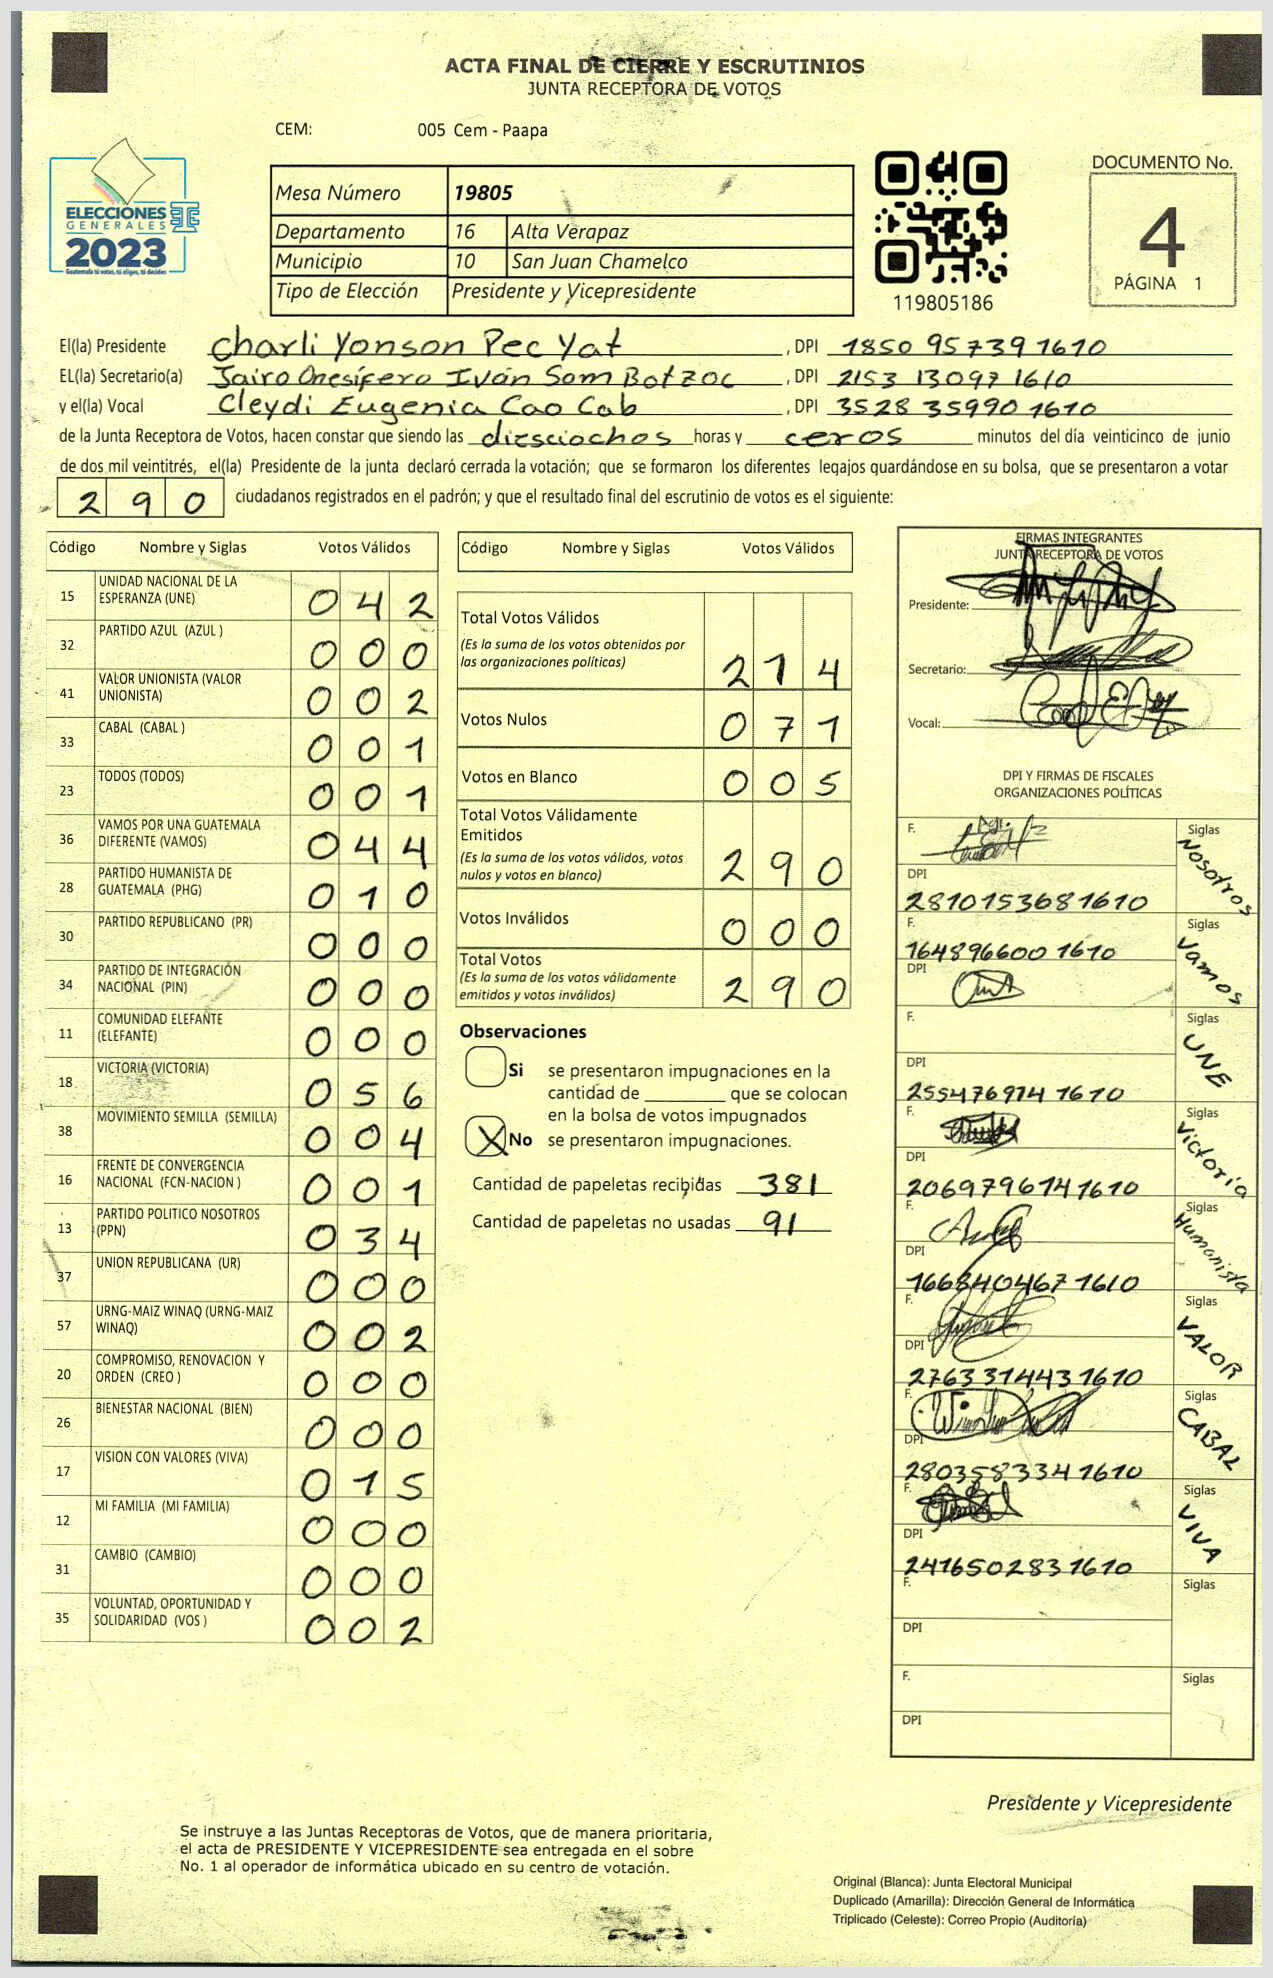 ACTA FINAL DE CIERRE Y ESCRUTINIOS
JUNTA RECEPTORA DE VOTOS
CEM: 005 Cem - Paapa
ELECCIONES
GENERALES
2023
Guatemala tú votas, tú eliges, tú decides
Mesa Número 19805
Departamento 16 Alta Verapaz
Municipio 10 San Juan Chamelco
Tipo de Elección Presidente y Vicepresidente
119805186
DOCUMENTO No.
4
PÁGINA 1
El(la) Presidente Charli Yonson Pec Yat , DPI 1850 95739 1610
EL(la) Secretario(a) Jairo Onesífero Iván Som Botzoc , DPI 2153 13097 1610
y el(la) Vocal Cleydi Eugenia Cao Cab , DPI 3528 35990 1610
de la Junta Receptora de Votos, hacen constar que siendo las diesciochos horas y ceros minutos del día veinticinco de junio
de dos mil veintitrés, el(la) Presidente de la junta declaró cerrada la votación; que se formaron los diferentes legajos guardándose en su bolsa, que se presentaron a votar
290 ciudadanos registrados en el padrón; y que el resultado final del escrutinio de votos es el siguiente:
Código Nombre y Siglas Votos Válidos
15 UNIDAD NACIONAL DE LA ESPERANZA (UNE) 042
32 PARTIDO AZUL (AZUL ) 000
41 VALOR UNIONISTA (VALOR UNIONISTA) 002
33 CABAL (CABAL ) 001
23 TODOS (TODOS) 001
36 VAMOS POR UNA GUATEMALA DIFERENTE (VAMOS) 044
28 PARTIDO HUMANISTA DE GUATEMALA (PHG) 010
30 PARTIDO REPUBLICANO (PR) 000
34 PARTIDO DE INTEGRACIÓN NACIONAL (PIN) 000
11 COMUNIDAD ELEFANTE (ELEFANTE) 000
18 VICTORIA (VICTORIA) 056
38 MOVIMIENTO SEMILLA (SEMILLA) 004
16 FRENTE DE CONVERGENCIA NACIONAL (FCN-NACION ) 001
13 PARTIDO POLITICO NOSOTROS (PPN) 034
37 UNION REPUBLICANA (UR) 000
57 URNG-MAIZ WINAQ (URNG-MAIZ WINAQ) 002
20 COMPROMISO, RENOVACION Y ORDEN (CREO ) 000
26 BIENESTAR NACIONAL (BIEN) 000
17 VISION CON VALORES (VIVA) 015
12 MI FAMILIA (MI FAMILIA) 000
31 CAMBIO (CAMBIO) 000
35 VOLUNTAD, OPORTUNIDAD Y SOLIDARIDAD (VOS ) 002
Código Nombre y Siglas Votos Válidos
Total Votos Válidos
(Es la suma de los votos obtenidos por
las organizaciones políticas) 214
Votos Nulos 071
Votos en Blanco 005
Total Votos Válidamente
Emitidos
(Es la suma de los votos válidos, votos
nulos y votos en blanco) 290
Votos Inválidos 000
Total Votos
(Es la suma de los votos válidamente
emitidos y votos inválidos) 290
Observaciones
Si se presentaron impugnaciones en la
cantidad de ________ que se colocan
en la bolsa de votos impugnados
X No se presentaron impugnaciones.
Cantidad de papeletas recibidas 381
Cantidad de papeletas no usadas 91
FIRMAS INTEGRANTES
JUNTA RECEPTORA DE VOTOS
Presidente:
Secretario:
Vocal:
DPI Y FIRMAS DE FISCALES
ORGANIZACIONES POLÍTICAS
F. Siglas Nosotros
DPI 2810153681610
F. Siglas Vamos
1648966001610
DPI
F. Siglas UNE
DPI 2554769741610
F. Siglas Victoria
DPI 2069796141610
F. Siglas Humanista
DPI 1668404671610
F. Siglas VALOR
DPI 2763314431610
F. Siglas CABAL
DPI 2803583341610
F. Siglas VIVA
DPI 2416502831610
F. Siglas
DPI
F. Siglas
DPI
Presidente y Vicepresidente
Se instruye a las Juntas Receptoras de Votos, que de manera prioritaria,
el acta de PRESIDENTE Y VICEPRESIDENTE sea entregada en el sobre
No. 1 al operador de informática ubicado en su centro de votación.
Original (Blanca): Junta Electoral Municipal
Duplicado (Amarilla): Dirección General de Informática
Triplicado (Celeste): Correo Propio (Auditoría)